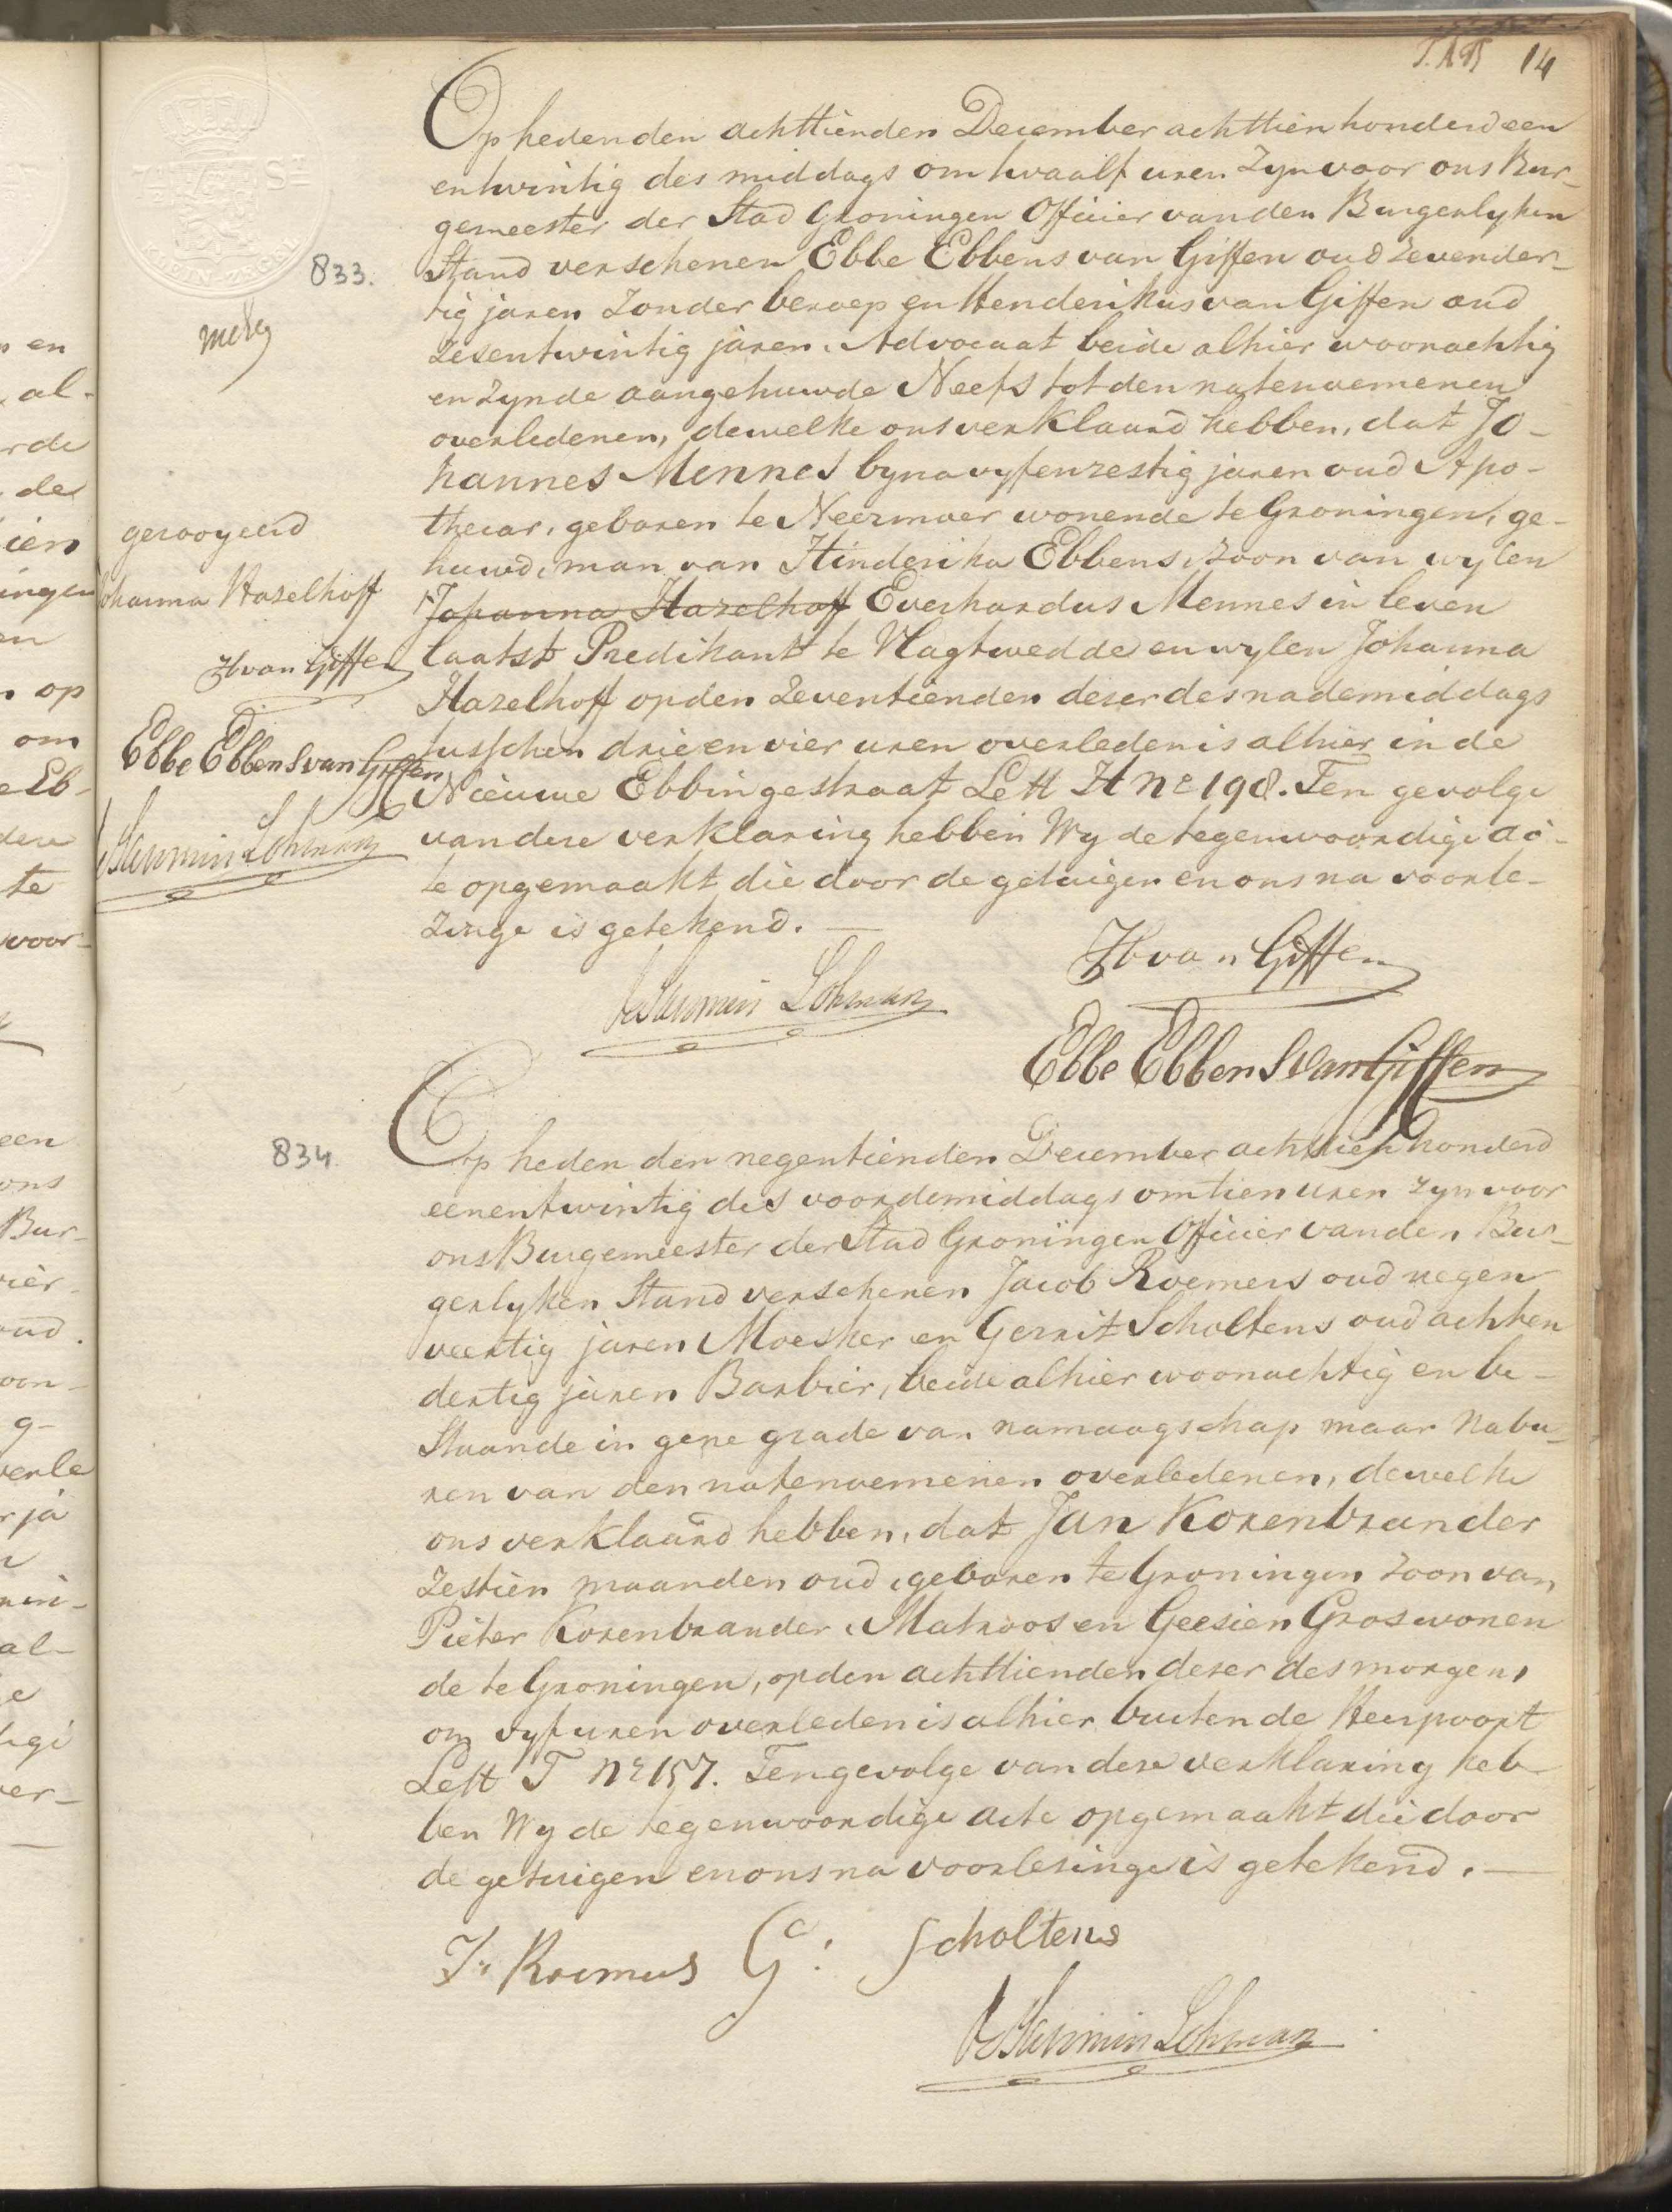 14
Op heden den achttienden December achttien honderd een
en twintig des middags om twaalf uren zyn voor ons Bur-
gemeester der Stad Groningen Officier van den Burgerlyken
833.
Stand verschenen Ebbe Ebbens van Giffen oud zevender-
tig jaren zonder beroep en Henderikus van Giffen oud
zesentwintig jaren. Advocaat beide alhier woonachtig
en zynde aangehuwde Neefs tot den natenoemenen
overledenen, dewelke ons verklaard hebben, dat Jo-
hannes Mennes byna vyfenzestig jaren oud Apo-
thecar, geboren te Neermoer wonende te Groningen, ge-
huwd, man van Hinderika Ebbens, zoon van wylen
Johanna Hazelhoff Everhardus Mennes in leven
laatst Predikant te Vlagtwedde en wylen Johanna
Hazelhoff op den zeventienden dezer des nademiddags
tusschen drie en vier uren overleden is alhier in de
Nieuwe Ebbingestraat Lett H No 198. Ten gevolge
van deze verklaring hebben Wy de tegenwoordige ac-
te opgemaakt die door de getuigen en ons na voorle-
zinge is getekend.
gerooyeerd
Johanna Hazelhoff
H van Giffen
Ebbe Ebbens van Giffen
Lohman
H van Giffen
Lohman
Ebbe Ebbens van Giffen
834.
Op heden den negentienden December achttien honderd
eenentwintig des voordemiddags om tien uren zyn voor
ons Burgemeester der Stad Groningen Officier van den Bur-
gerlyken Stand verschenen Jacob Roemers oud negen
veertig jaren Moesker en Gerrit Scholtens oud achten
dertig jaren Barbier, beide alhier woonachtig en be-
staande in gene grade van namaagschap maar Nabu-
ren van den natenoemenen overledenen, dewelke
ons verklaard hebben, dat Jan Korenbrander
zestien maanden oud, geboren te Groningen zoon van
Pieter Korenbrander, Matroos en Geesien Gros wonen
de te Groningen, op den achttienden dezer des morgens
om vyf uren overleden is alhier buiten de Heerpoort
Lett T No 157. Tengevolge van deze verklaring heb-
ben Wy de tegenwoordige acte opgemaakt die door
de getuigen en ons na voorlezinge is getekend.
J. Roemers G: Scholtens
Lohman